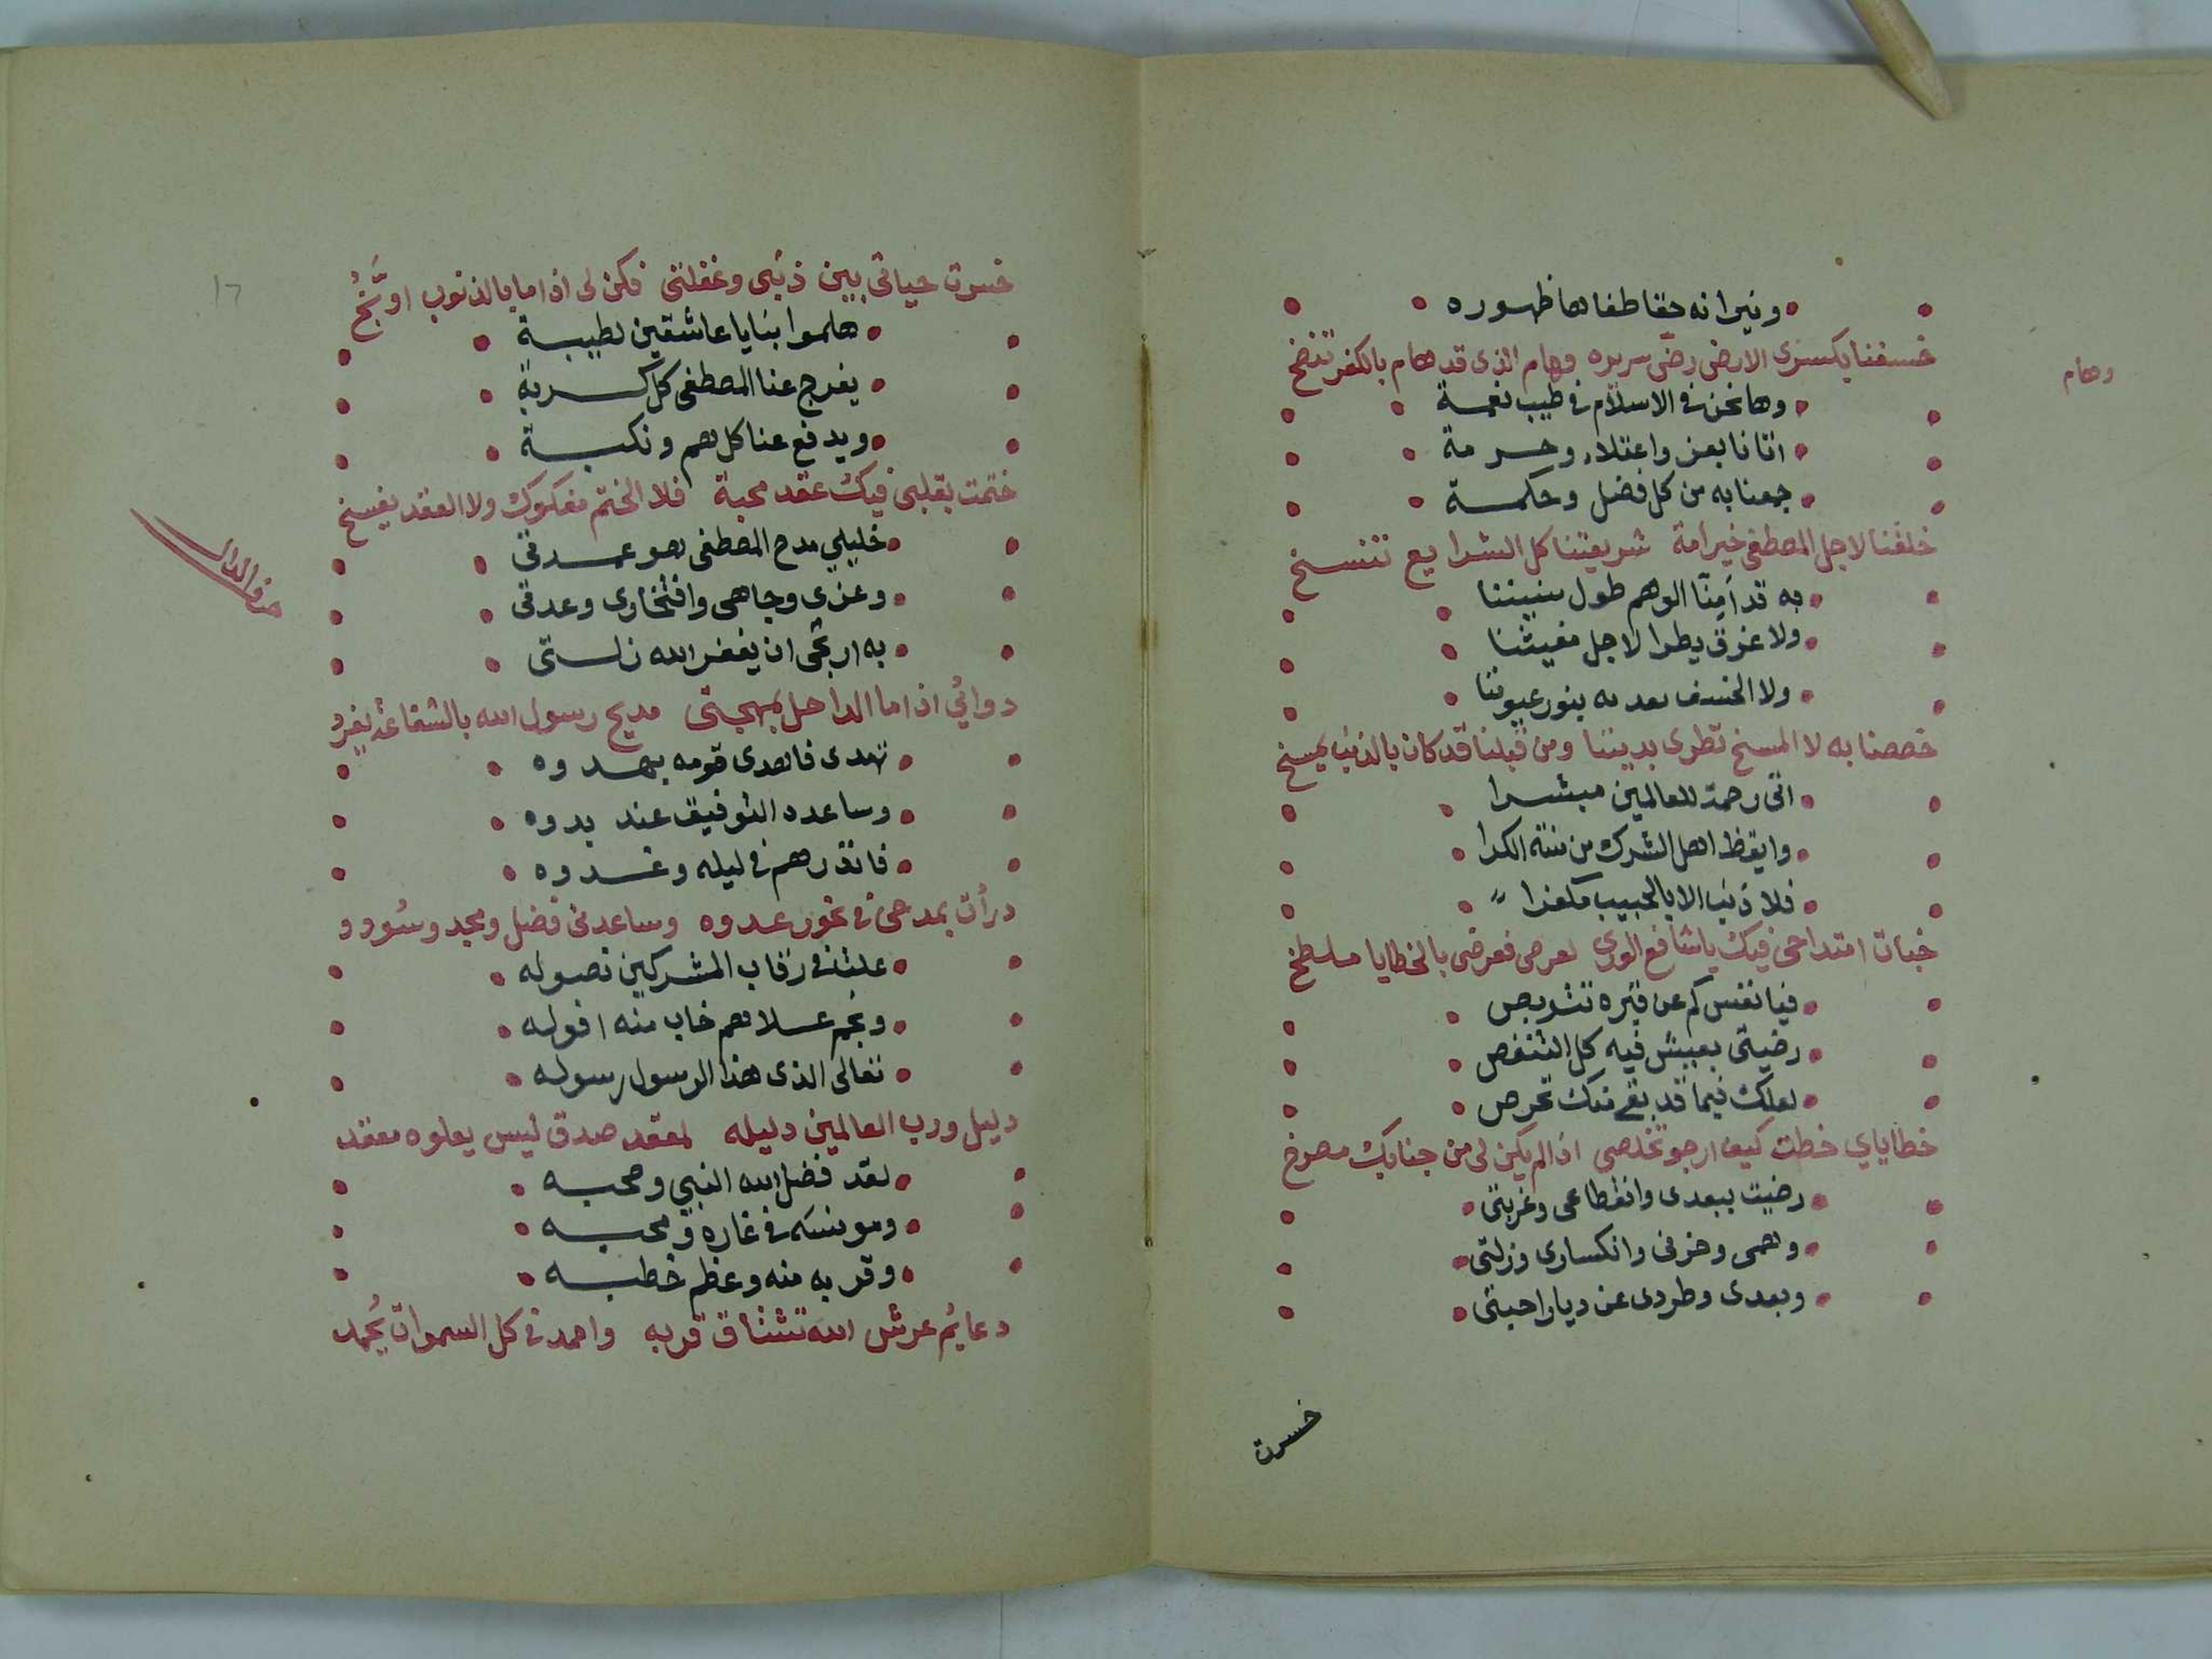 ونيرانه حقا طفاها ظهوره
خسفنا بكسرى الارض رضّ سريره وهام الذى قد هام بالكفر تنضخ
وهام
وها نحن فى الاسلام فى طيب نعمة
اتانا بعز واعتلاء وحرمة
جمعنا به من كل فضل وحكمة
خلقنا لاجل المصطفى خير امة شريعتنا كل الشرايع تنسخ
به قد اَمِنّا الوهم طول سنيننا
ولا غرق يطرا لاجل مغيثنا
ولا الخسف بعد به ينور عيوننا
خصصنا به لا المسخ تطرى بديننا ومن قبلنا قد كان بالذنب يمسخ
اتى رحمة للعالمين مبشرا
وايقظ اهل الشرك من سنة الكرا
فلا ذنب الا بالحبيب مكفرا
خبأت امتداحى فيك يا شافع الورى لعرضى فعرضى بالخطايا ملطخ
فيا نفس كم عن قبره تتربص
رضيتى بعيش فيه كل التنغص
لعلك فيما قد بقى منك تحرص
خطاياي خطت كيف ارجو تخلصى اذا لم يكن لى من جنابك مصرخ
رضيت ببعدى وانقطاعى وغربتى
وهمى وحزنى وانكسارى وزلتى
وبعدى وطردى عن ديار احبتى
خسرت
١٦
خسرت حياتى بين ذنبى وغفلتى فكن لى اذا ما بالذنوب اوبَّخُ
هلموا بنا يا عاشقين لطيبة
يفرج عنا المصطفى كل كربة
ويدفع عنا كل هم ونكبة
ختمت بقلبى فيك عقد محبة فلا الختم مفكوك ولا العقد يفسخ
حرف الدال
خليلي مدح المصطفى هو عمدتى
وعزى وجاهى وافتخارى وعدتى
به ارتجى ان يغفر الله زلتى
دوائي اذا ما الداحل بمهجتى مديح رسول الله بالشفاعة يفرد
تهدى فاهدى قومه بهدوه
وساعده التوفيق عند بدوه
فانذرهم فى ليله وغدوه
درأت بمدحى فى نحور عدوه وساعدنى فضل ومجد وسُودد
علت فى رقاب المشركين نصوله
ونجم علاهم خاب منه افوله
تعالى الذى هذا الرسول رسوله
دليل ورب العالمين دليله لمقعد صدق ليس يعلوه مقعد
لقد فضل الله النبي وصحبه
ومونسه فى غاره ومحبه
وقربه منه وعظم خطبه
دعايم عرش الله تشتاق قربه واحمد فى كل السموات يُحمد